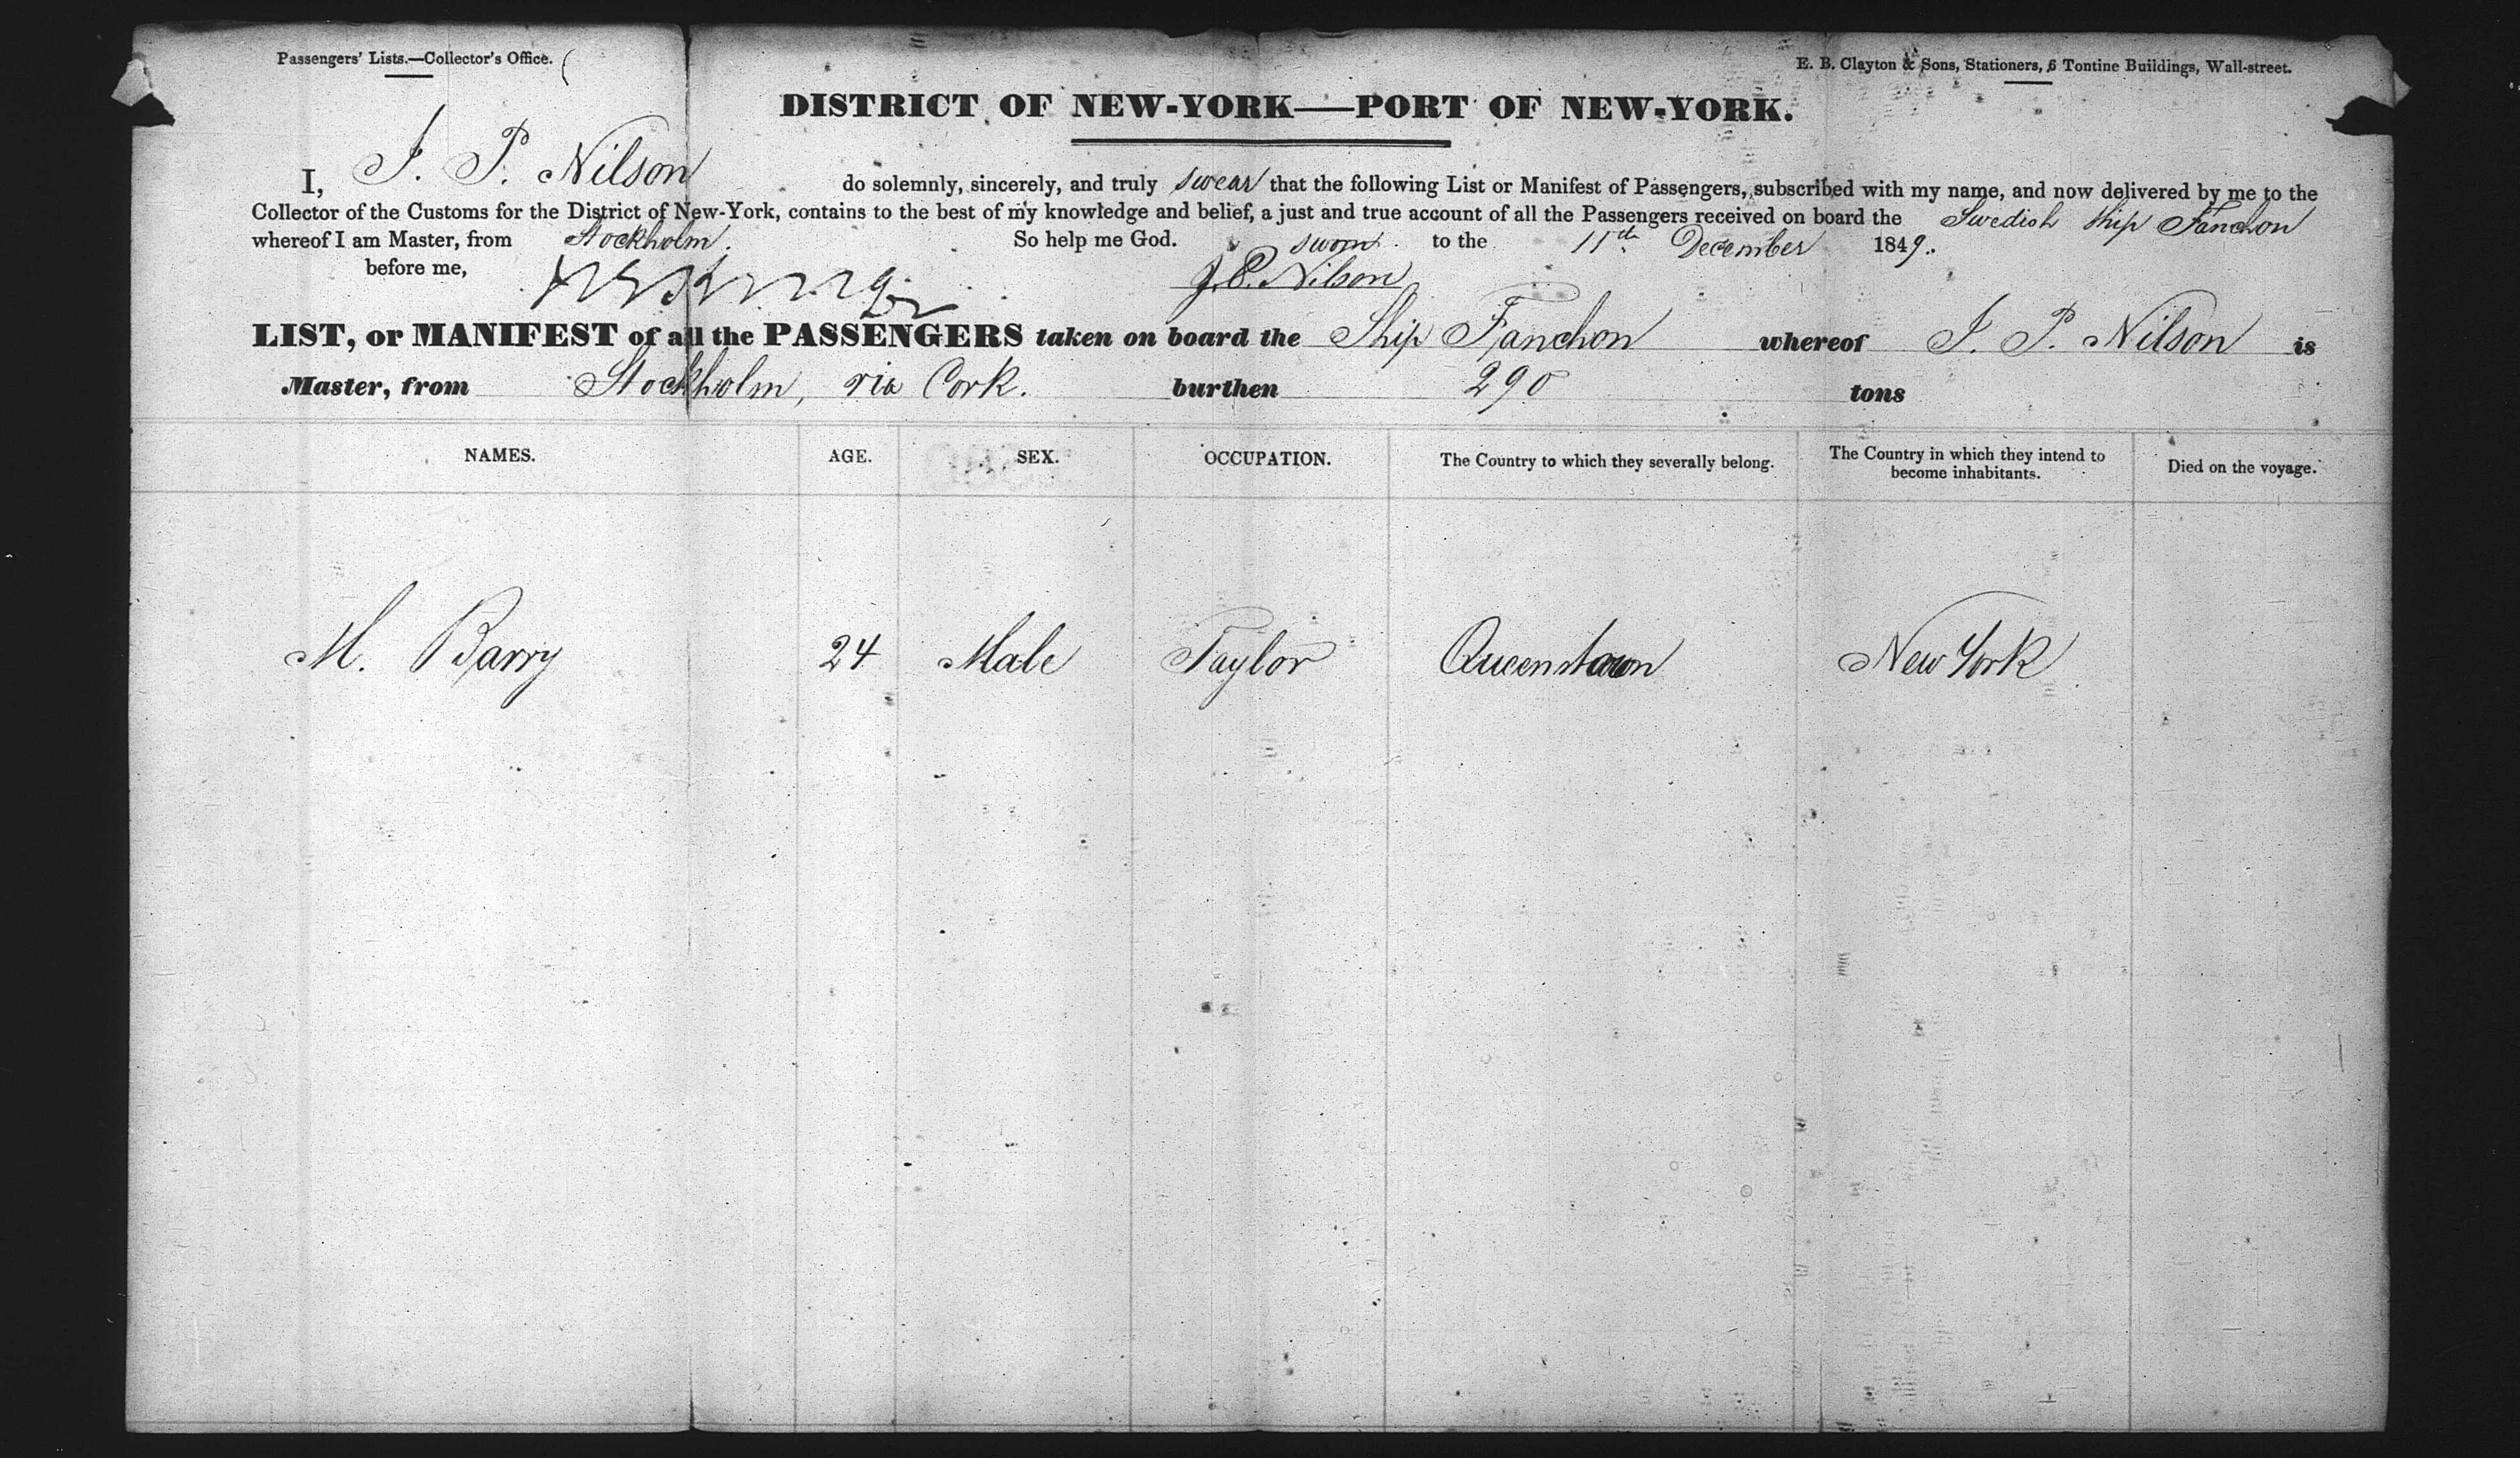 Passengers' Lists.—Collector's Office.
E. B. Clayton & Sons, Stationers, 6 Tontine Buildings, Wall-street.
DISTRICT OF NEW-YORK—PORT OF NEW-YORK.
I, J. P. Nilson do solemnly, sincerely, and truly swear that the following List or Manifest of Passengers, subscribed with my name, and now delivered by me to the
Collector of the Customs for the District of New-York, contains to the best of my knowledge and belief, a just and true account of all the Passengers received on board the Swedish Ship Fanchon
whereof I am Master, from Stockholm. So help me God. sworn to the 11th December 1849.
before me, J. P. Nilson
LIST, or MANIFEST of all the PASSENGERS taken on board the Ship Fanchon whereof J. P. Nilson is
Master, from Stockholm, via Cork. burthen 290 tons
NAMES. AGE. SEX. OCCUPATION. The Country to which they severally belong. The Country in which they intend to become inhabitants. Died on the voyage.
M. Barry 24 Male Taylor Queenstown New York